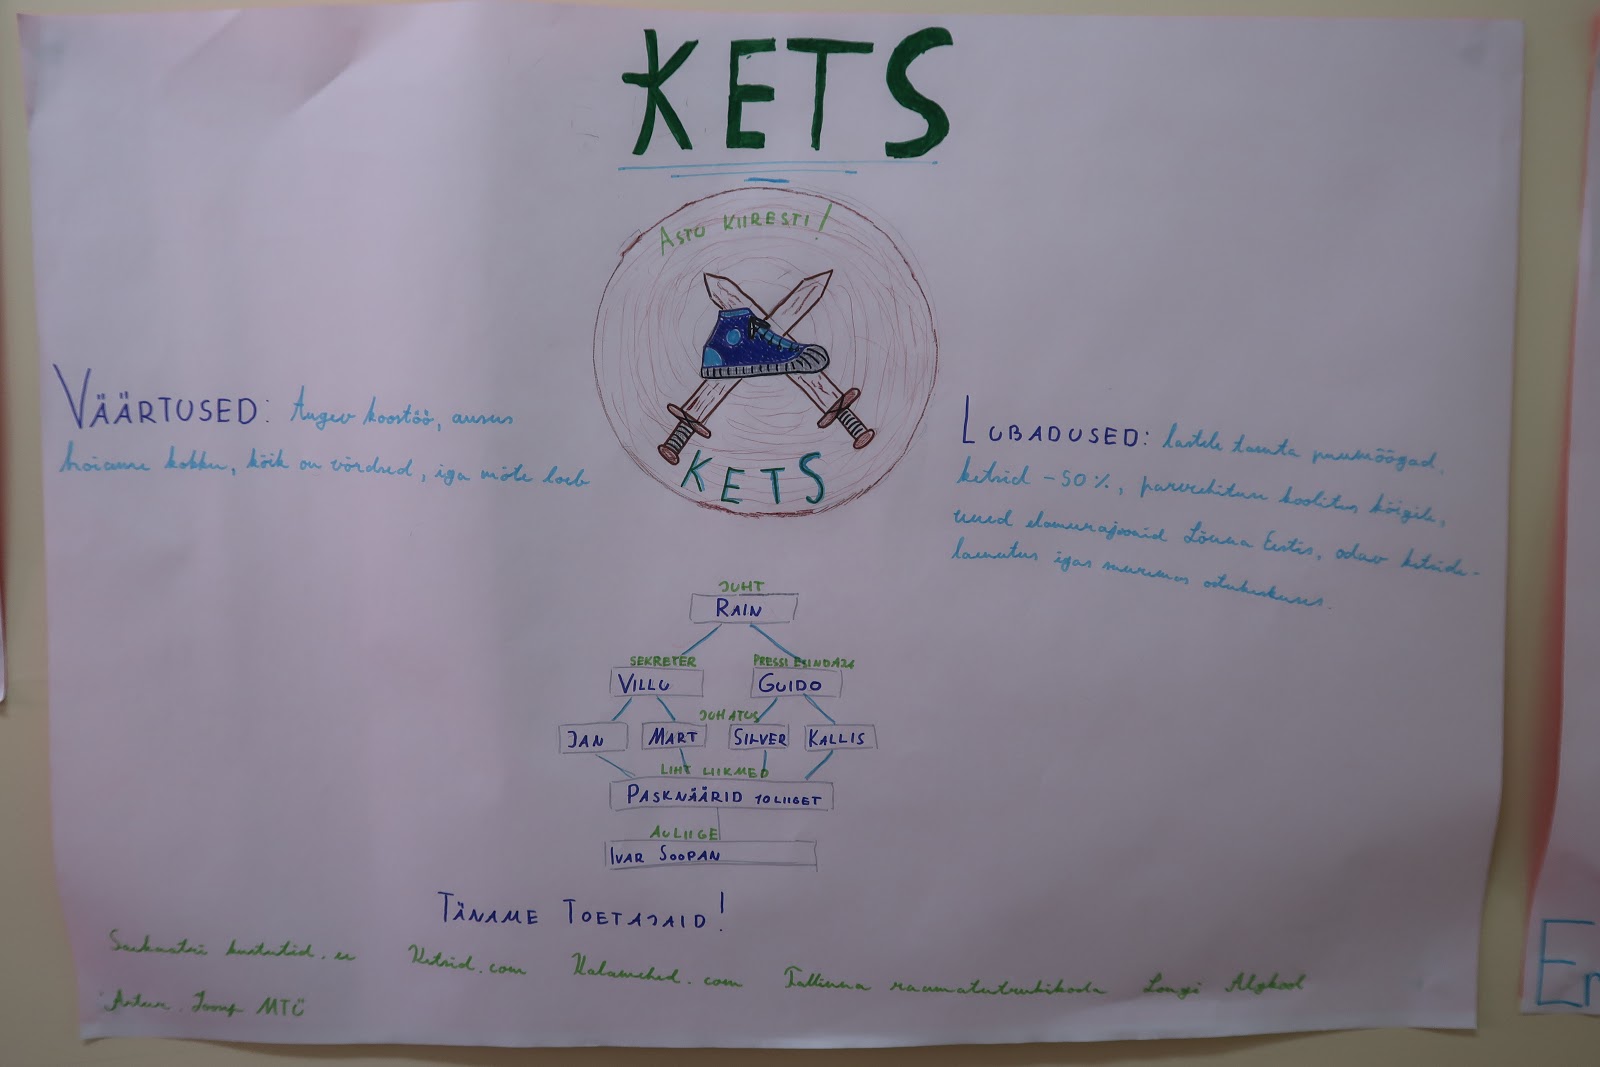 KETS
ASTU KIIRESTI!
KETS
VÄÄRTUSED: Tugev koostöö, ausus
hoiame kokku, kõik on võrdsed, iga mõte loeb
LUBADUSED: lastele tasuta puumõõgad,
ketsid -50%, parveehituse koolitus kõigile,
uued elamurajoonid Lõuna Eestis, odav ketside-
laenutus igas suuremas ostukeskuses.
JUHT
RAIN
SEKRETER PRESSI ESINDAJA
VILLU GUIDO
JUHATUS
JAN MART SILVER KALLIS
LIHT LIIKMED
PASKNÄÄRID 10 LIIGET
AULIIGE
IVAR SOOPAN
TÄNAME TOETAJAID!
kustutid.ee Ketsid.com Kalamehed.com Tallinna raamatutrukikoda Algkool
Artur MTÜ
En